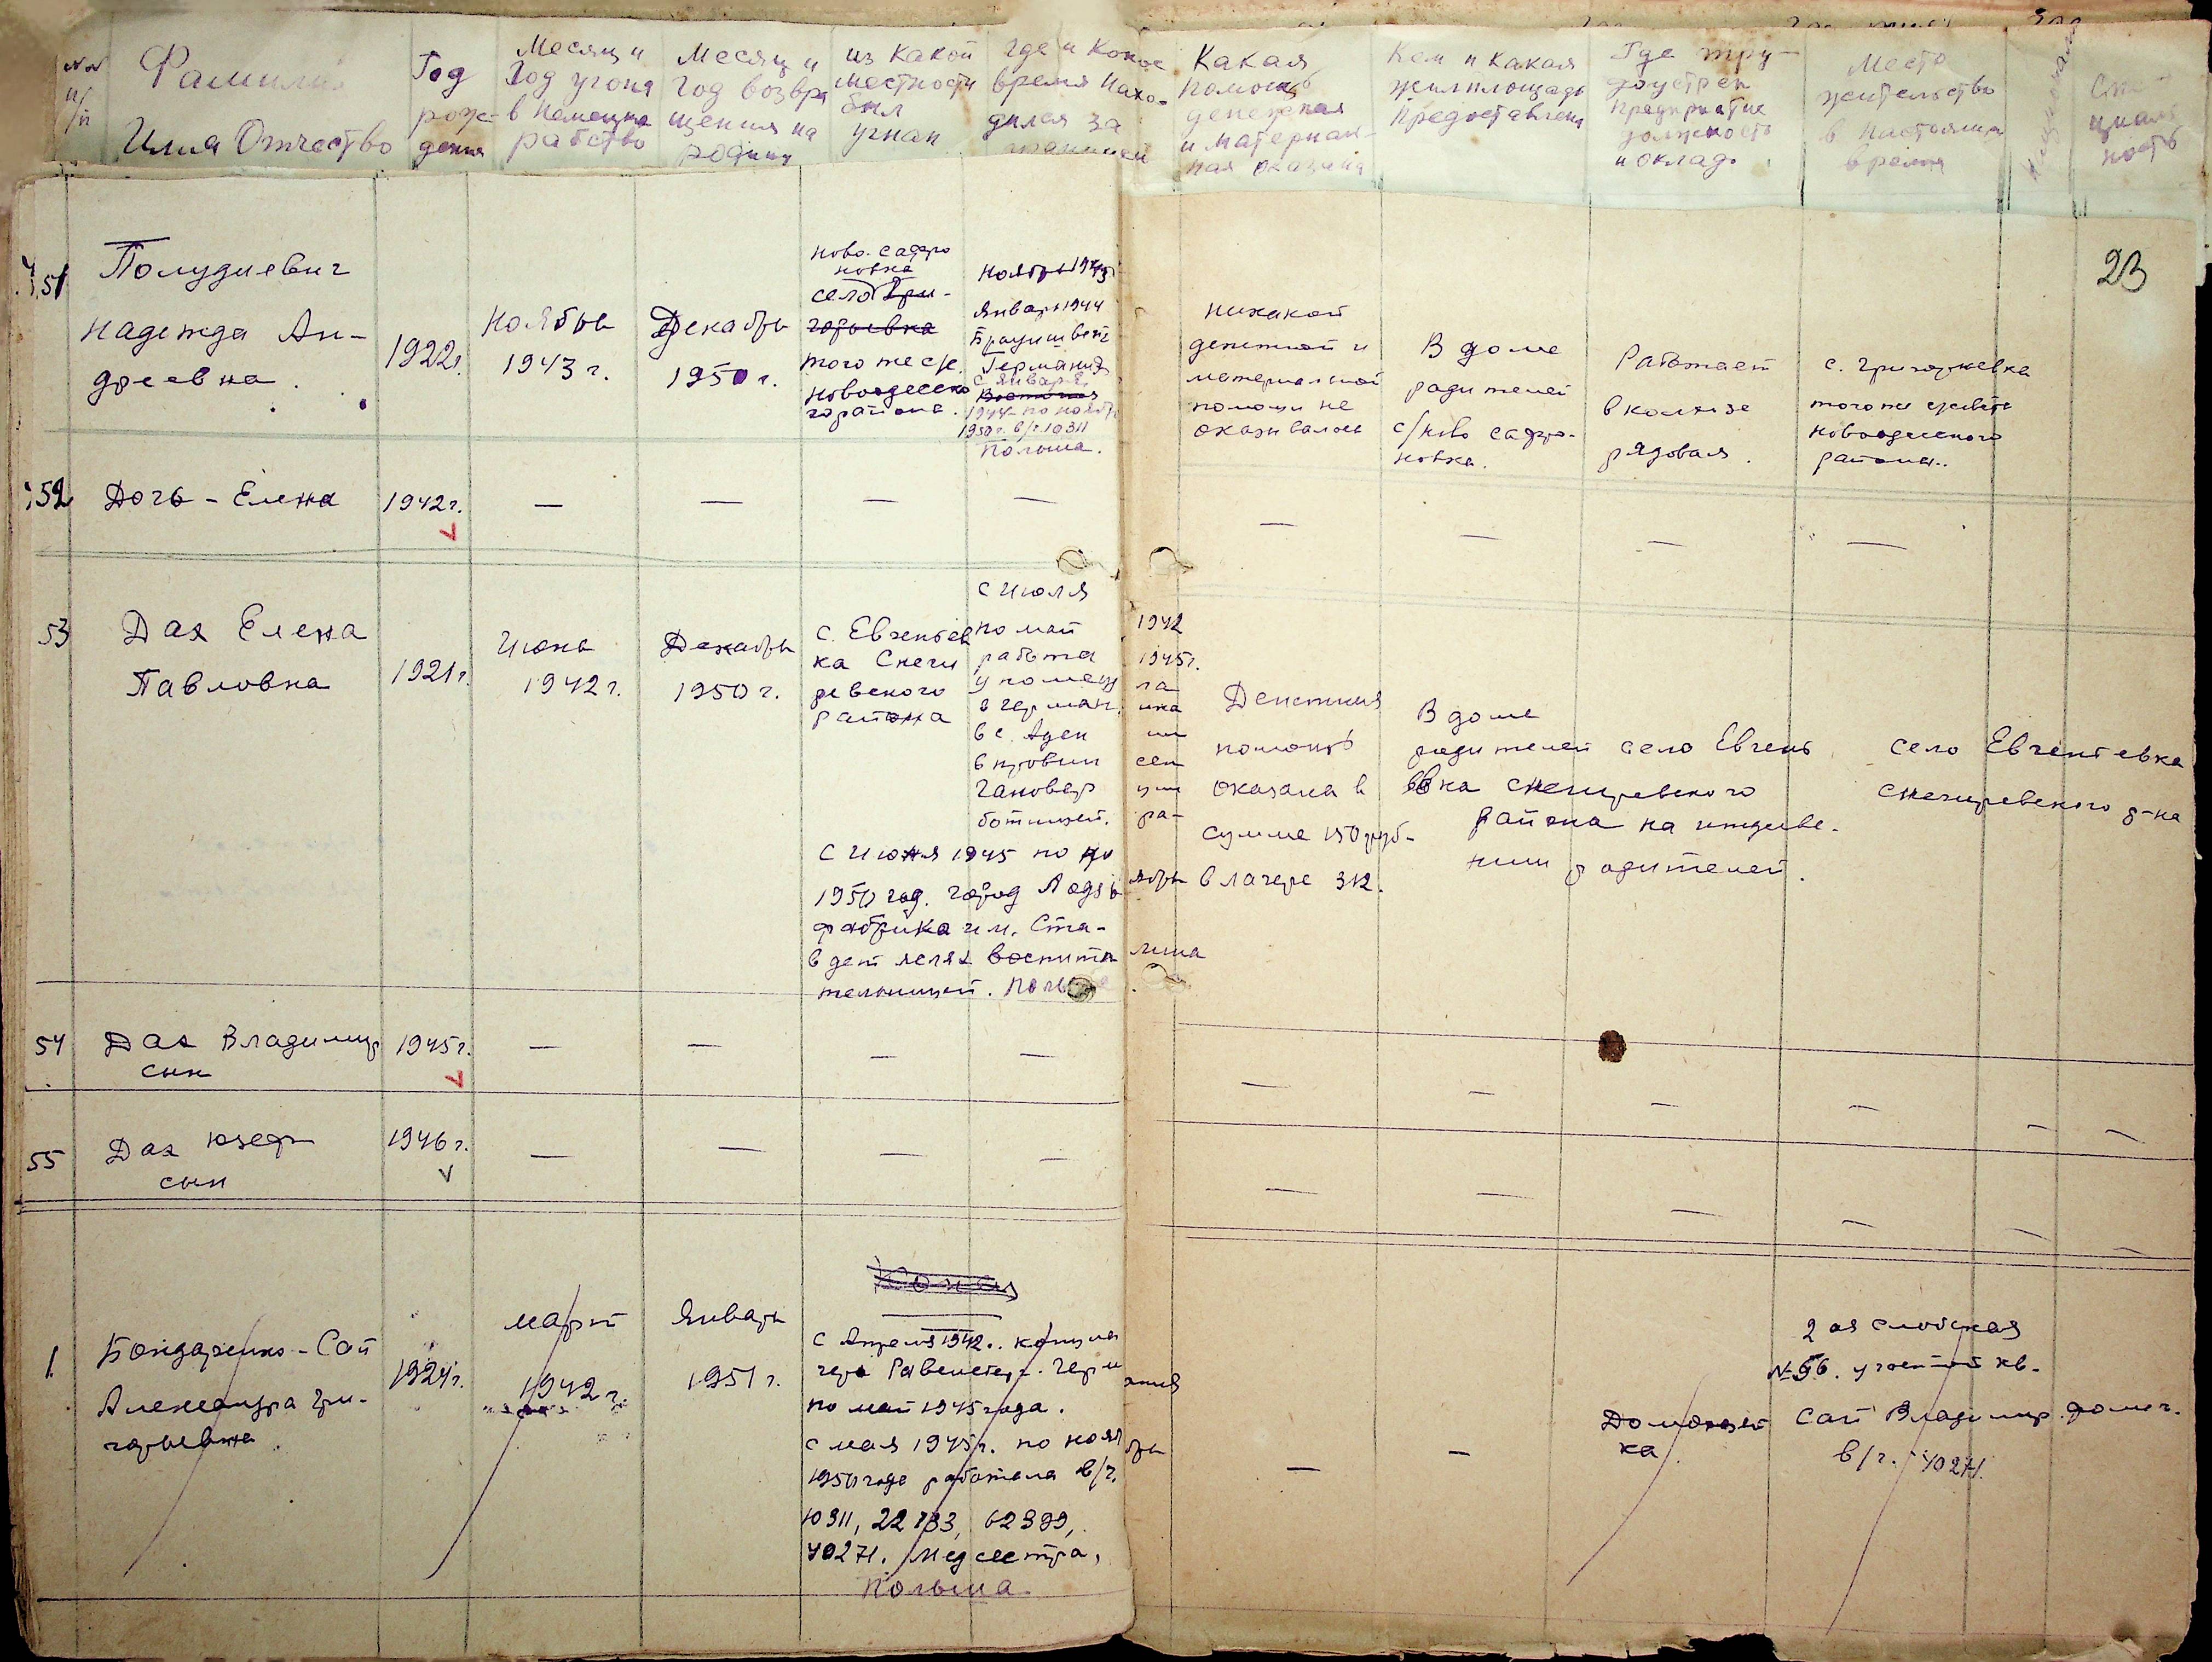 №№ п/п
Фамилия
Имя Отчество
Год
рож-
дения
Месяц и
Год угона
в Немецкое
рабство
Месяц и
Год возвра
щения на
родину
из какой
местности
был
угнан
где и какое
время нахо-
дился за
границей
Какая
помощь
денежная
и материаль-
ная оказана
Кем и какая
жилплощадь
предоставлена
Где тру-
доустроен
предприятие
должность
и оклад.
Место
жительства
в настоящее
время
Спе
циаль
ность
23
51
Полудневич
Надежда Ан-
дреевна.
1922г.
Ноябрь
1943 г.
Декабрь
1950 г.
Ново-сафро
новка
село Гри-
горьевка
того же с/с.
Новоодесско
го района.
Ноябрь 1943
Январь 1944
Брауншвейг
Германия
с января
1944 по ноябрь
1950 г. в/ч 10311
Польша.
никакой
денежной и
материальной
помощи не
оказывалось
В доме
родителей
с/Ново сафро-
новка.
Работает
в колхозе
рядовая.
с. Григорьевка
того же с/совета
Новоодесского
района..
52
Дочь - Елена
1942г.
— — — — — — — —
53
Дах Елена
Павловна
1921г.
Июнь
1942 г.
Декабрь
1950 г.
с. Евгеньев
ка Снеги
ревского
района
с Июля 1942
по май 1945г.
работа ла
у помещ ика
в Герман. ии
в с. Аден сен
в провин ции
Гановер ра-
ботницей.
с Июня 1945 по но ябрь
1950 год. город Лодзь
фабрика им. Ста- лина
в дет яслях воспита
тельницей. Польше.
Денежная
помощь
оказана в
сумме 150 руб-
в лагере 312.
В доме
родителей село Евгень
евка Снегиревского
района на иждиве-
нии родителей.
село Евгентевка
Снегиревского р-на
54
Дах Владимир
сын
1945г.
— — — — — — — — — —
55
Дах Юзеф
сын
1946г.
— — — — — — — — — —
1.
Бондаренко-Сай
Александра Гри-
горьевна
1924г.
март
1942 г.
Январь
1951 г.
с Апреля 1942.. концла
геря Равенсберг. Герм ания
по май 1945 года.
с мая 1945г. по нояб рь
1950 года работала в/ч.
10311, 22733, 62399,
70271. Медсестра,
Польша.
— —
Домохозяй
ка
2 ая слободская
№56. участной кв.
Сай Владимир. домоч.
в/ч. 70271.